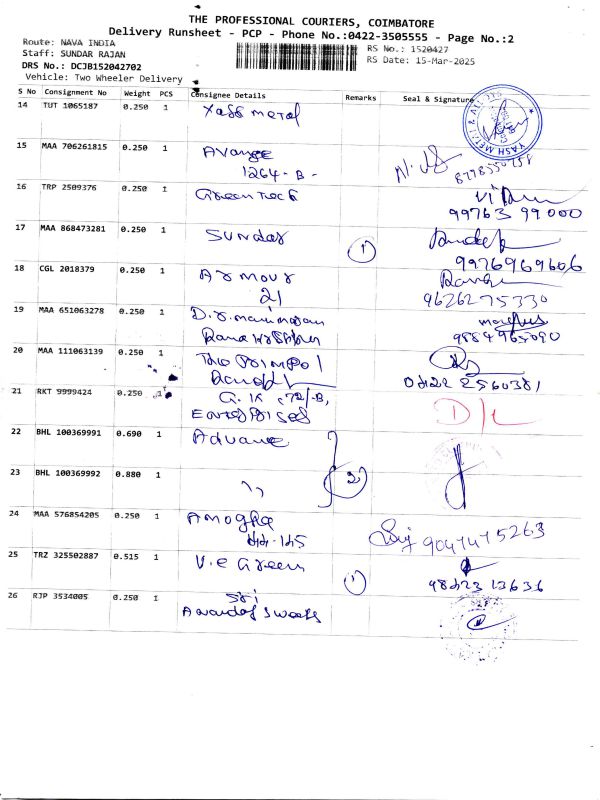 THE PROFESSIONAL COURIERS, COIMBATORE
Delivery Runsheet - PCP - Phone No.:0422-3505555 - Page No.:2
Route: NAVA INDIA
Staff: SUNDAR RAJAN
DRS No.: DCJB152042702
Vehicle: Two Wheeler Delivery
RS No.: 1520427
RS Date: 15-Mar-2025
S No Consignment No Weight PCS Consignee Details Remarks Seal & Signature
14 TUT 1065187 0.250 1 Yash metal
YASH METAL & ALLOYS
15 MAA 706261815 0.250 1 Avange
1264-B-
16 TRP 2509376 0.250 1 Green Teck
99763 99000
17 MAA 868473281 0.250 1 Sundar 1
9976969606
18 CGL 2018379 0.250 1 Armour
21
9626275330
19 MAA 651063278 0.250 1 D.r.manimaran
9884965090
20 MAA 111063139 0.250 1
0422 2560381
21 RKT 9999424 0.250 1 G.K 72/-B,
Enterprises D/L
22 BHL 100369991 0.690 1 Advance
23 BHL 100369992 0.880 1 " 2
24 MAA 576854205 0.250 1 Amogha
44-145
9047475263
25 TRZ 325502887 0.515 1 V.e Green 1
9842313636
26 RJP 3534005 0.250 1 Sri
Anandas Sweets